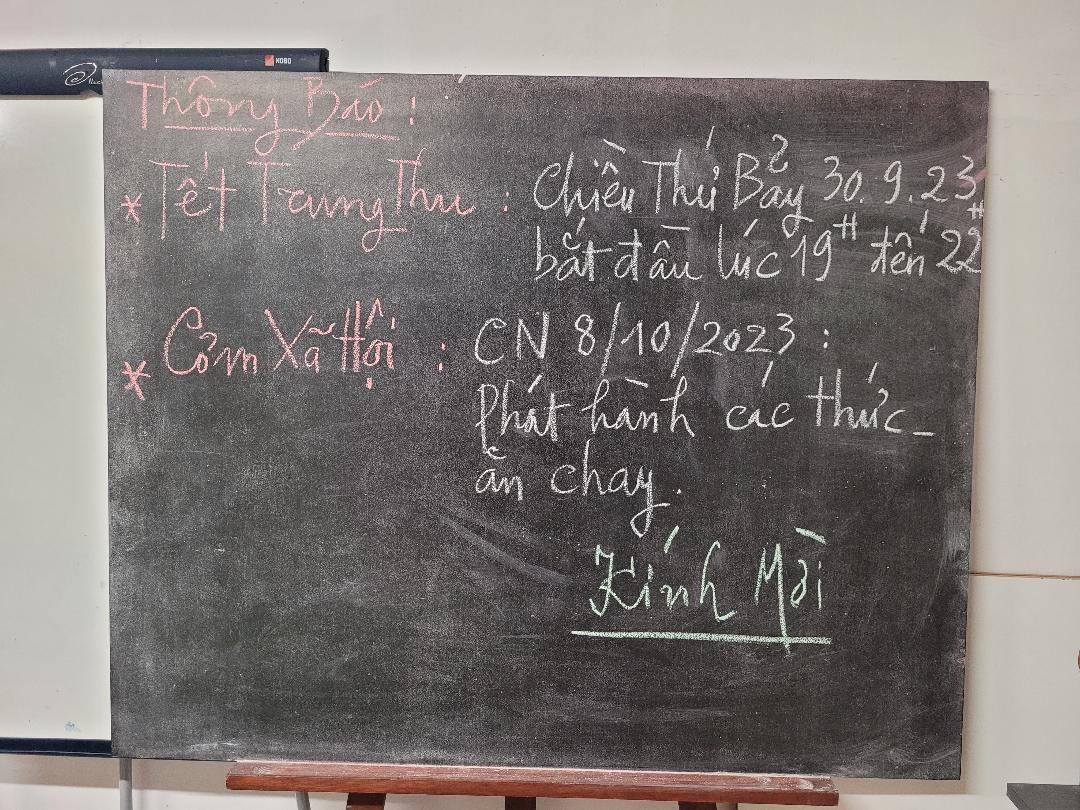 KOBO
Thông Báo :
* Tết Trung Thu : Chiều Thứ Bảy 30.9.23
bắt đầu lúc 19H đến 22H
* Cơm Xã Hội : CN 8/10/2023 :
Phát hành các thức_
ăn chay.
Kính Mời